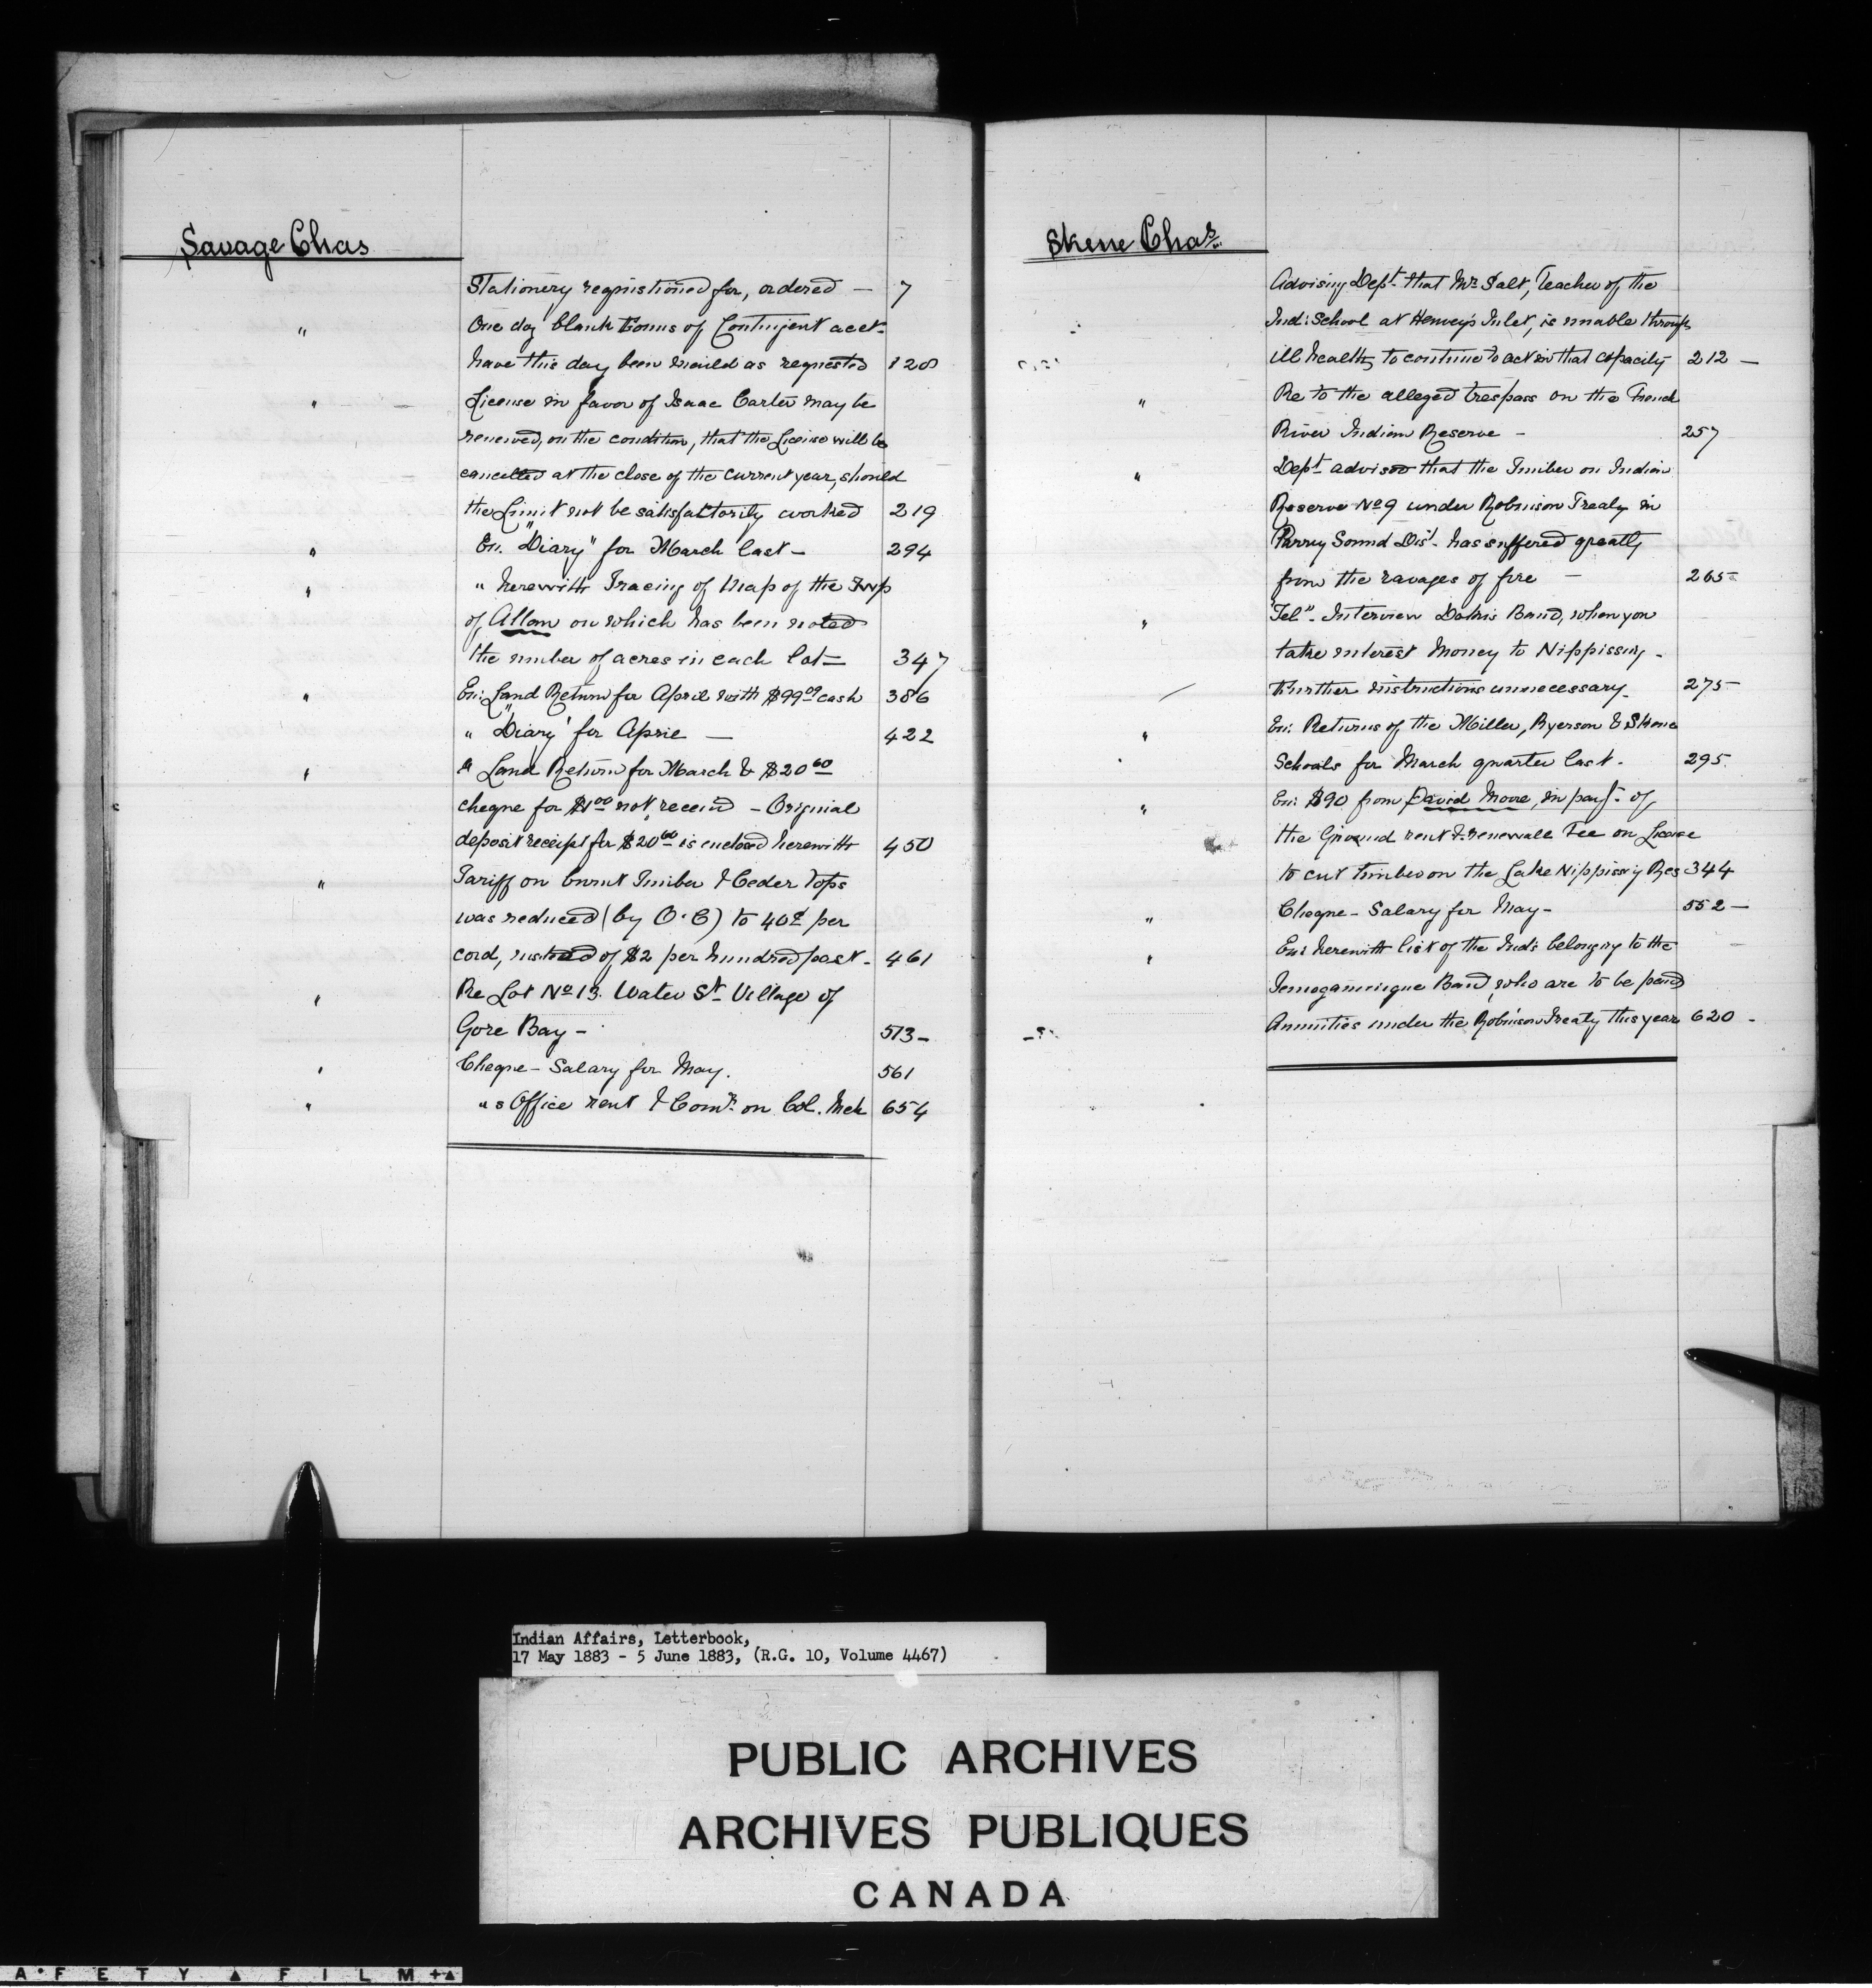 Savage Chas
Stationery requistioned for, ordered — 7
" One doz blank Forms of Contingent acct.
have this day been mailed as requested 128
" License in favor of Isaac Carter may be
renewed, on the condition, that the License will be
cancelled at the close of the current year, should
the Limit not be satisfactorily worked 219
" En: "Diary" for March last — 294
" " herewith Tracing of Map of the Twp
of Allan on which has been noted
the number of acres in each lot — 347
" En: Land Return for April with $99 cash 386
" "Diary" for April — 422
" " Land Return for March & $20 60
cheque for $1 00 not receivd — Original
deposit receipt for $20 60 is enclosed herewith 450
" Tariff on burnt Timber & Ceder Tops
was reduced (by O.C) to 40¢ per
cord, instead of $2 per hundred feet. 461
" Re Lot No 13. Water St. Village of
Gore Bay — 513 —
" Cheque — Salary for May. 561
" "s Office rent & Comn. on Col. 654
Skene Chas.
Advising Dept. that Mr. Salt, Teacher of the
Ind: School at Henvey's Inlet, is unable through
ill health, to continue to act in that capacity 212 —
" Re to the alleged trespass on the French
River Indian Reserve — 257
" Dept. advised that the Timber on Indian
Reserve No 9 under Robinson Treaty in
Parry Sound Dist. has suffered greatly
from the ravages of fire — 265
" "Tel". Interview Dokis Band, when you
take interest Money to Nippissing —
Further instructions unnecessary — 275
" En: Returns of the Miller, Ryerson & Skene
Schools for March quarter last. 295
" En: $90 from David Moore, in payt. of
the Ground rent & renewall Fee on License
to cut timber on the Lake Nippissing Res 344
" Cheque — Salary for May — 552 —
" En: herewith list of the Inds belonging to the
Temogamingue Band, who are to be paid
Annuities under the Robinson Treaty this year 620 —
Indian Affairs, Letterbook,
17 May 1883 - 5 June 1883, (R.G. 10, Volume 4467)
PUBLIC ARCHIVES
ARCHIVES PUBLIQUES
CANADA
AFETY FILM